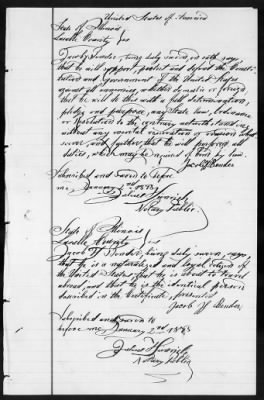 United States of America
State of Illinois
Lasalle County } ss
Jacob Y Bender, being duly sworn deposeth
that he will support, protect and defend the Consti-
tution and Government of the United States
against all enemies, whether domestic or foreign
that he will do this with a full determination,
pledge and purpose, any State law, ordinance
or Resolution to the contrary notwithstanding
without any mental reservation or evasion what
soever, and further that he will perform all
duties, which may be required of him by law.
Jacob Y Bender
Subscribed and sworn to before
me, January 2nd 1883
Notary Public
State of Illinois
Lasalle County } ss
Jacob Y Bender, being duly sworn, says
that he is a naturalized and loyal citizen of
the United States that he is about to travel
abroad, and that he is the identical person
described in the Certificate, presented
Jacob Y Bender
Subscribed and sworn to
before me, January 2nd 1883
Notary Public